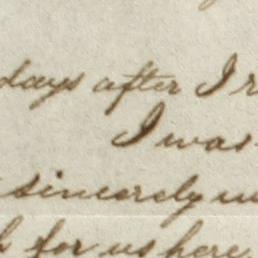 days after I
I was
sincerely
for us here